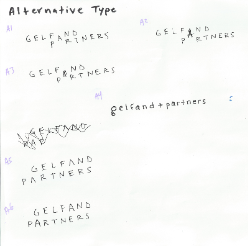 Alternative Type
A1
GELFAND
PARTNERS
A2
GELFAND
PARTNERS
A3
GELFAND
PARTNERS
A4
gelfand + partners
GELFAND
A5
GELFAND
PARTNERS
A6
GELFAND
PARTNERS